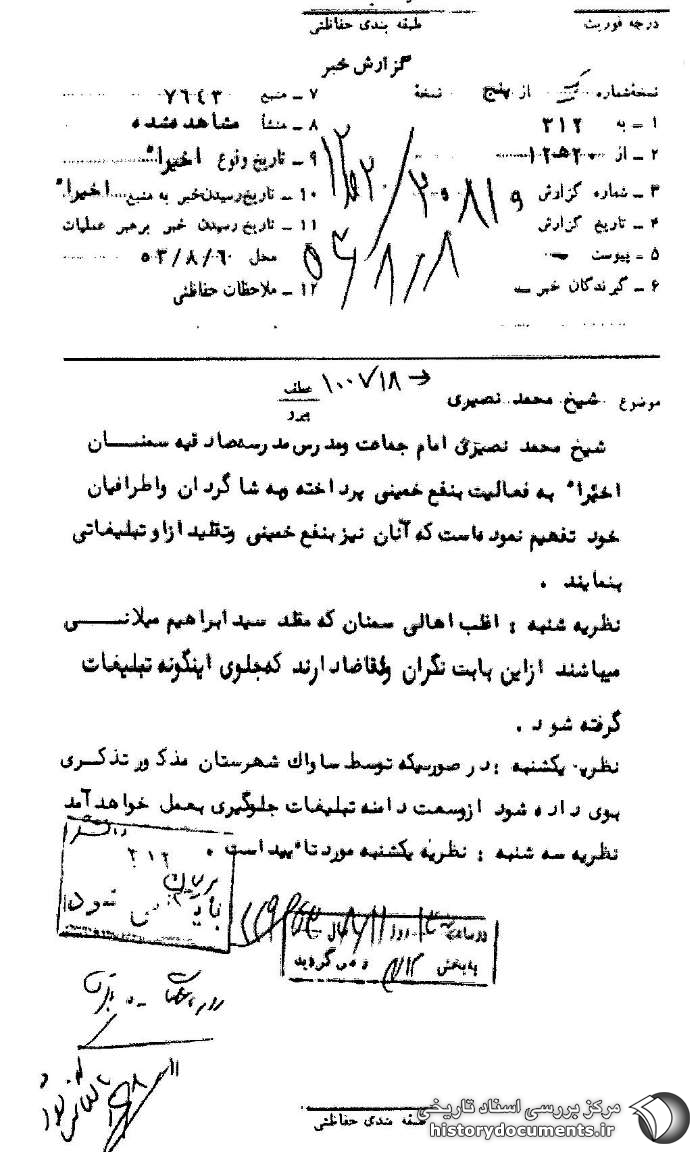 درجه فوریت
طبقه بندی حفاظتی
گزارش خبر
نسخهٔ شماره یک از پنج نسخهٔ
۱ ـ به ۳۱۲
۲ ـ از ۱۲ه۲۰
۳ ـ شماره گزارش
۴ ـ تاریخ گزارش
۵ ـ پیوست
۶ ـ گیرندگان خبر
۷ ـ منبع ۷۶۴۳
۸ ـ منشأ مشاهده شده
۹ ـ تاریخ وقوع اخیرا"
۱۰ ـ تاریخ رسیدن خبر به منبع اخیرا"
۱۱ ـ تاریخ رسیدن خبر برهبر عملیات
محل ۵۳/۸/۶۰
۱۲ ـ ملاحظات حفاظتی
موضوع شیخ محمد نصیری عطف پیرو ۱۰۰۷۱۸
شیخ محمد نصیری امام جماعت ومدرس مدرسه صادقیه سمنان
اخیرا" به فعالیت بنفع خمینی پرداخته وبه شاگردان واطرافیان
خود تفهیم نموده است که آنان نیز بنفع خمینی وتقلید از او تبلیغاتی
بنمایند .
نظریه شنبه : اغلب اهالی سمنان که مقلد سید ابراهیم میلانی
میباشند از این بابت نگران وتقاضا دارند که جلوی اینگونه تبلیغات
گرفته شود .
نظریه یکشنبه : در صورتیکه توسط ساواک شهرستان مذکور تذکری
بوی داده شود از وسعت دامنه تبلیغات جلوگیری بعمل خواهد آمد
نظریه سه شنبه : نظریه یکشنبه مورد تائید است .
۳۱۲
بایگانی شود
در ساعت روز سال
به بخش ۳۱۲ می گردید
طبقه بندی حفاظتی
مرکز بررسی اسناد تاریخی
historydocuments.ir